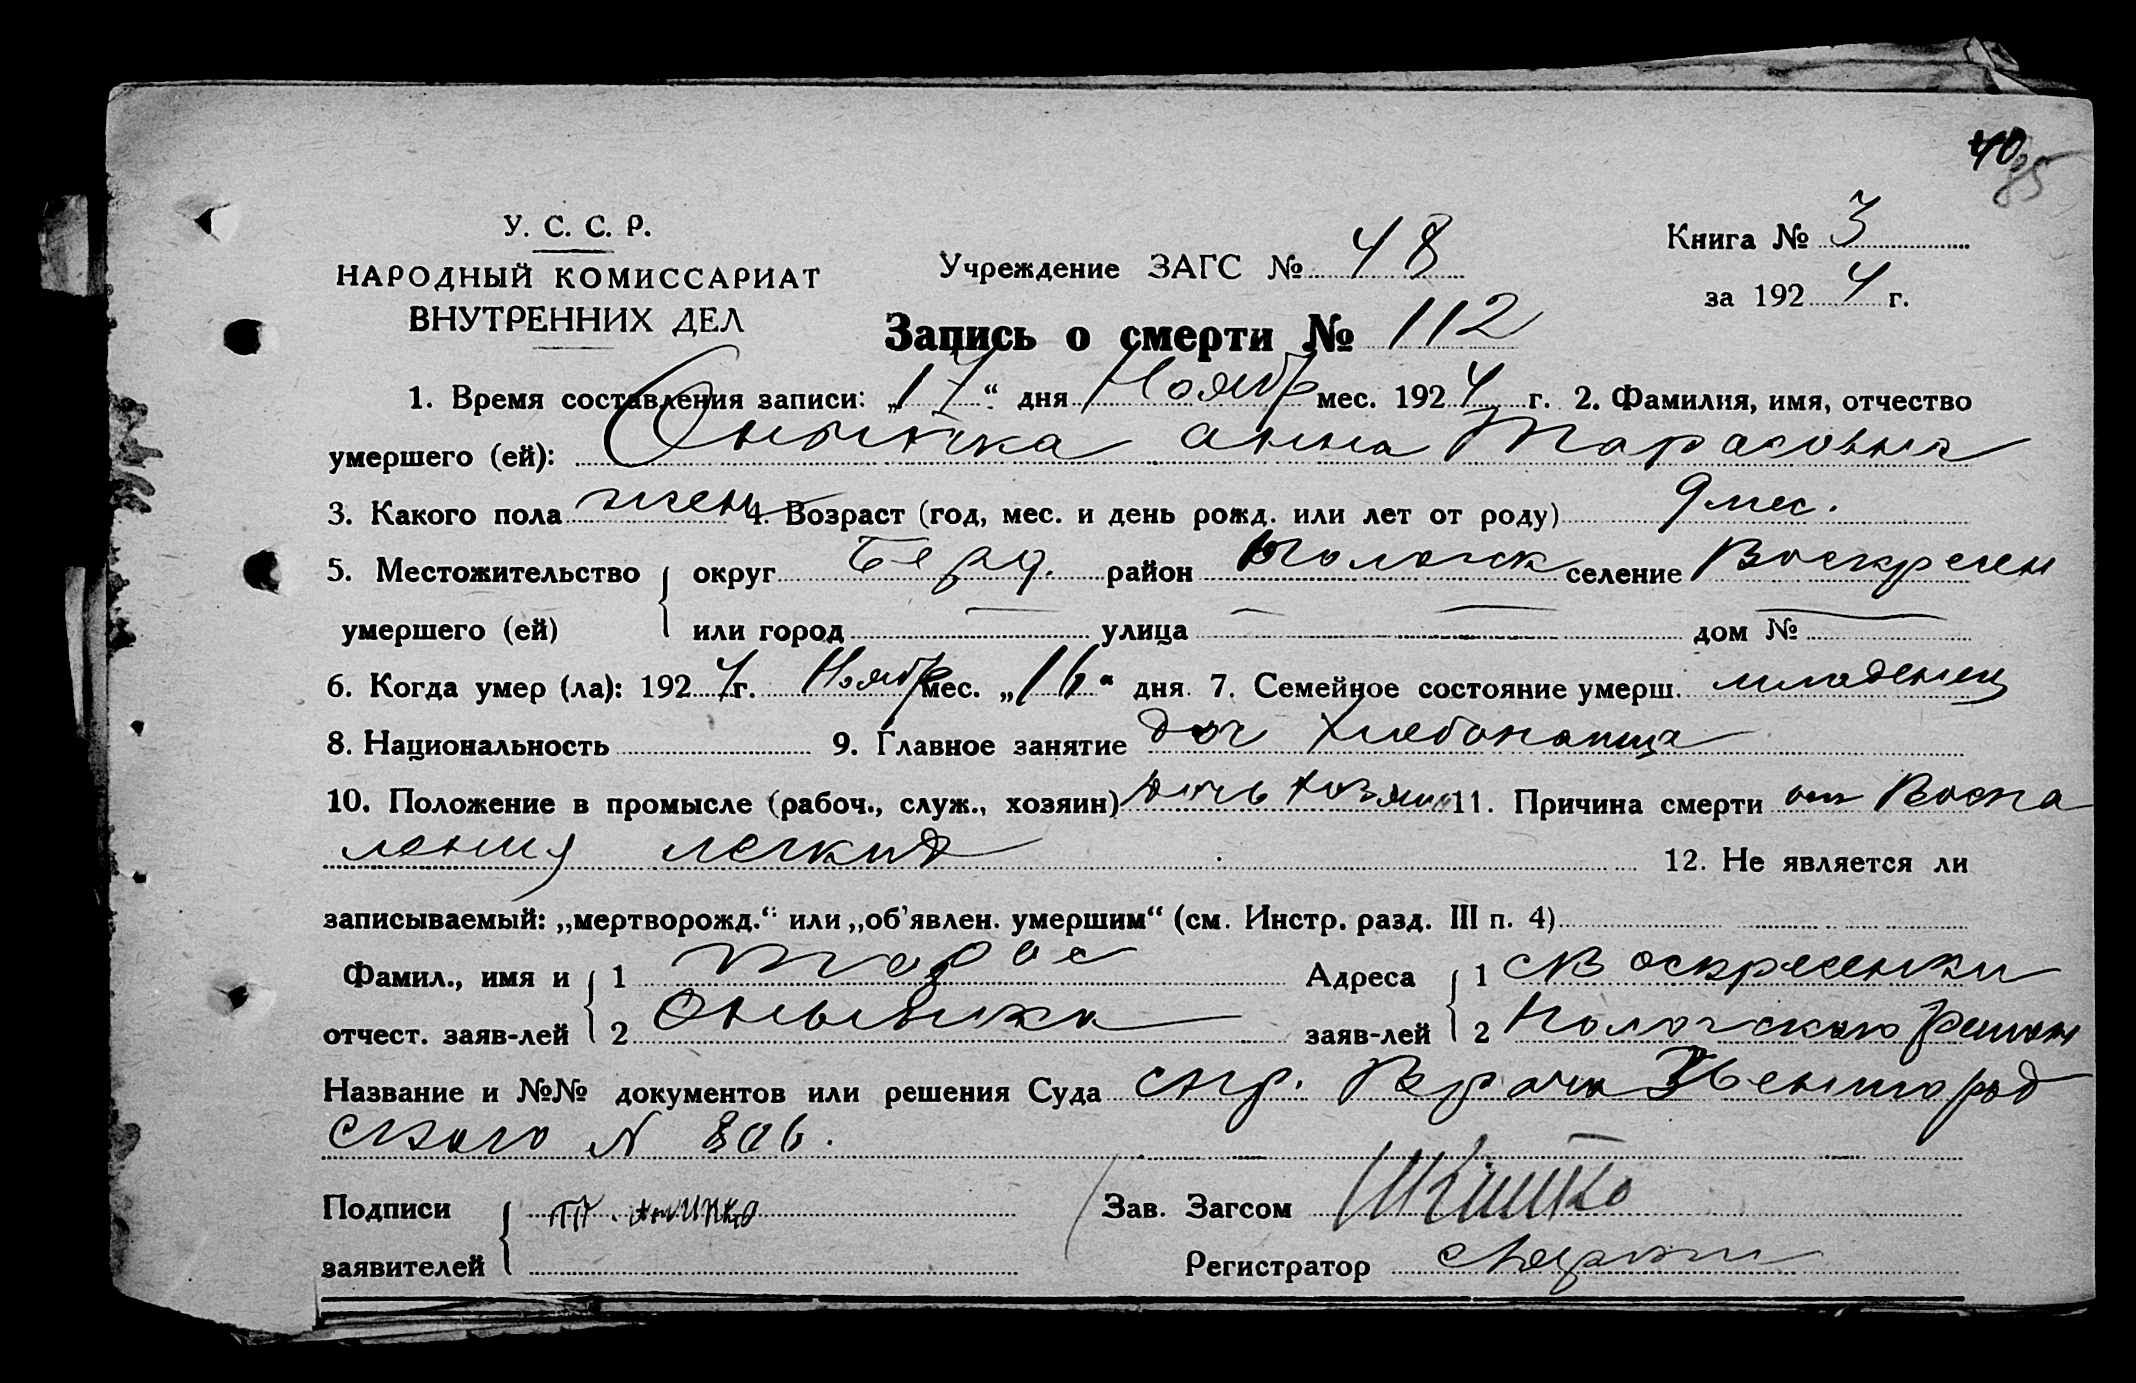 40
85
У. С. С. Р.
НАРОДНЫЙ КОМИССАРИАТ
ВНУТРЕННИХ ДЕЛ
Учреждение ЗАГС № 48
Книга № 3
за 1924 г.
Запись о смерти № 112
1. Время составления записи: „17“ дня Ноябр мес. 1924 г. 2. Фамилия, имя, отчество
умершего (ей): Анна Тарасовна
3. Какого пола жен 4. Возраст (год, мес. и день рожд. или лет от роду) 9 мес.
5. Местожительство округ Берд. район селение Воскресен
умершего (ей) или город — улица — — дом № —
6. Когда умер (ла): 1924 г. Ноябр мес. „16“ дня 7. Семейное состояние умерш. младенец
8. Национальность 9. Главное занятие доч хлебопашца
10. Положение в промысле (рабоч., служ., хозяин) дочь хозяина 11. Причина смерти от Воспа
ления легких
12. Не является ли
записываемый: „мертворожд.“ или „об'явлен. умершим“ (см. Инстр. разд. III п. 4)
Фамил., имя и 1 Тарас Адреса 1 с Воскресенки
отчест. заяв-лей 2 заяв-лей 2 Пологского
Название и №№ документов или решения Суда спр. Врача
ского N 806.
Подписи
заявителей
Зав. Загсом
Регистратор